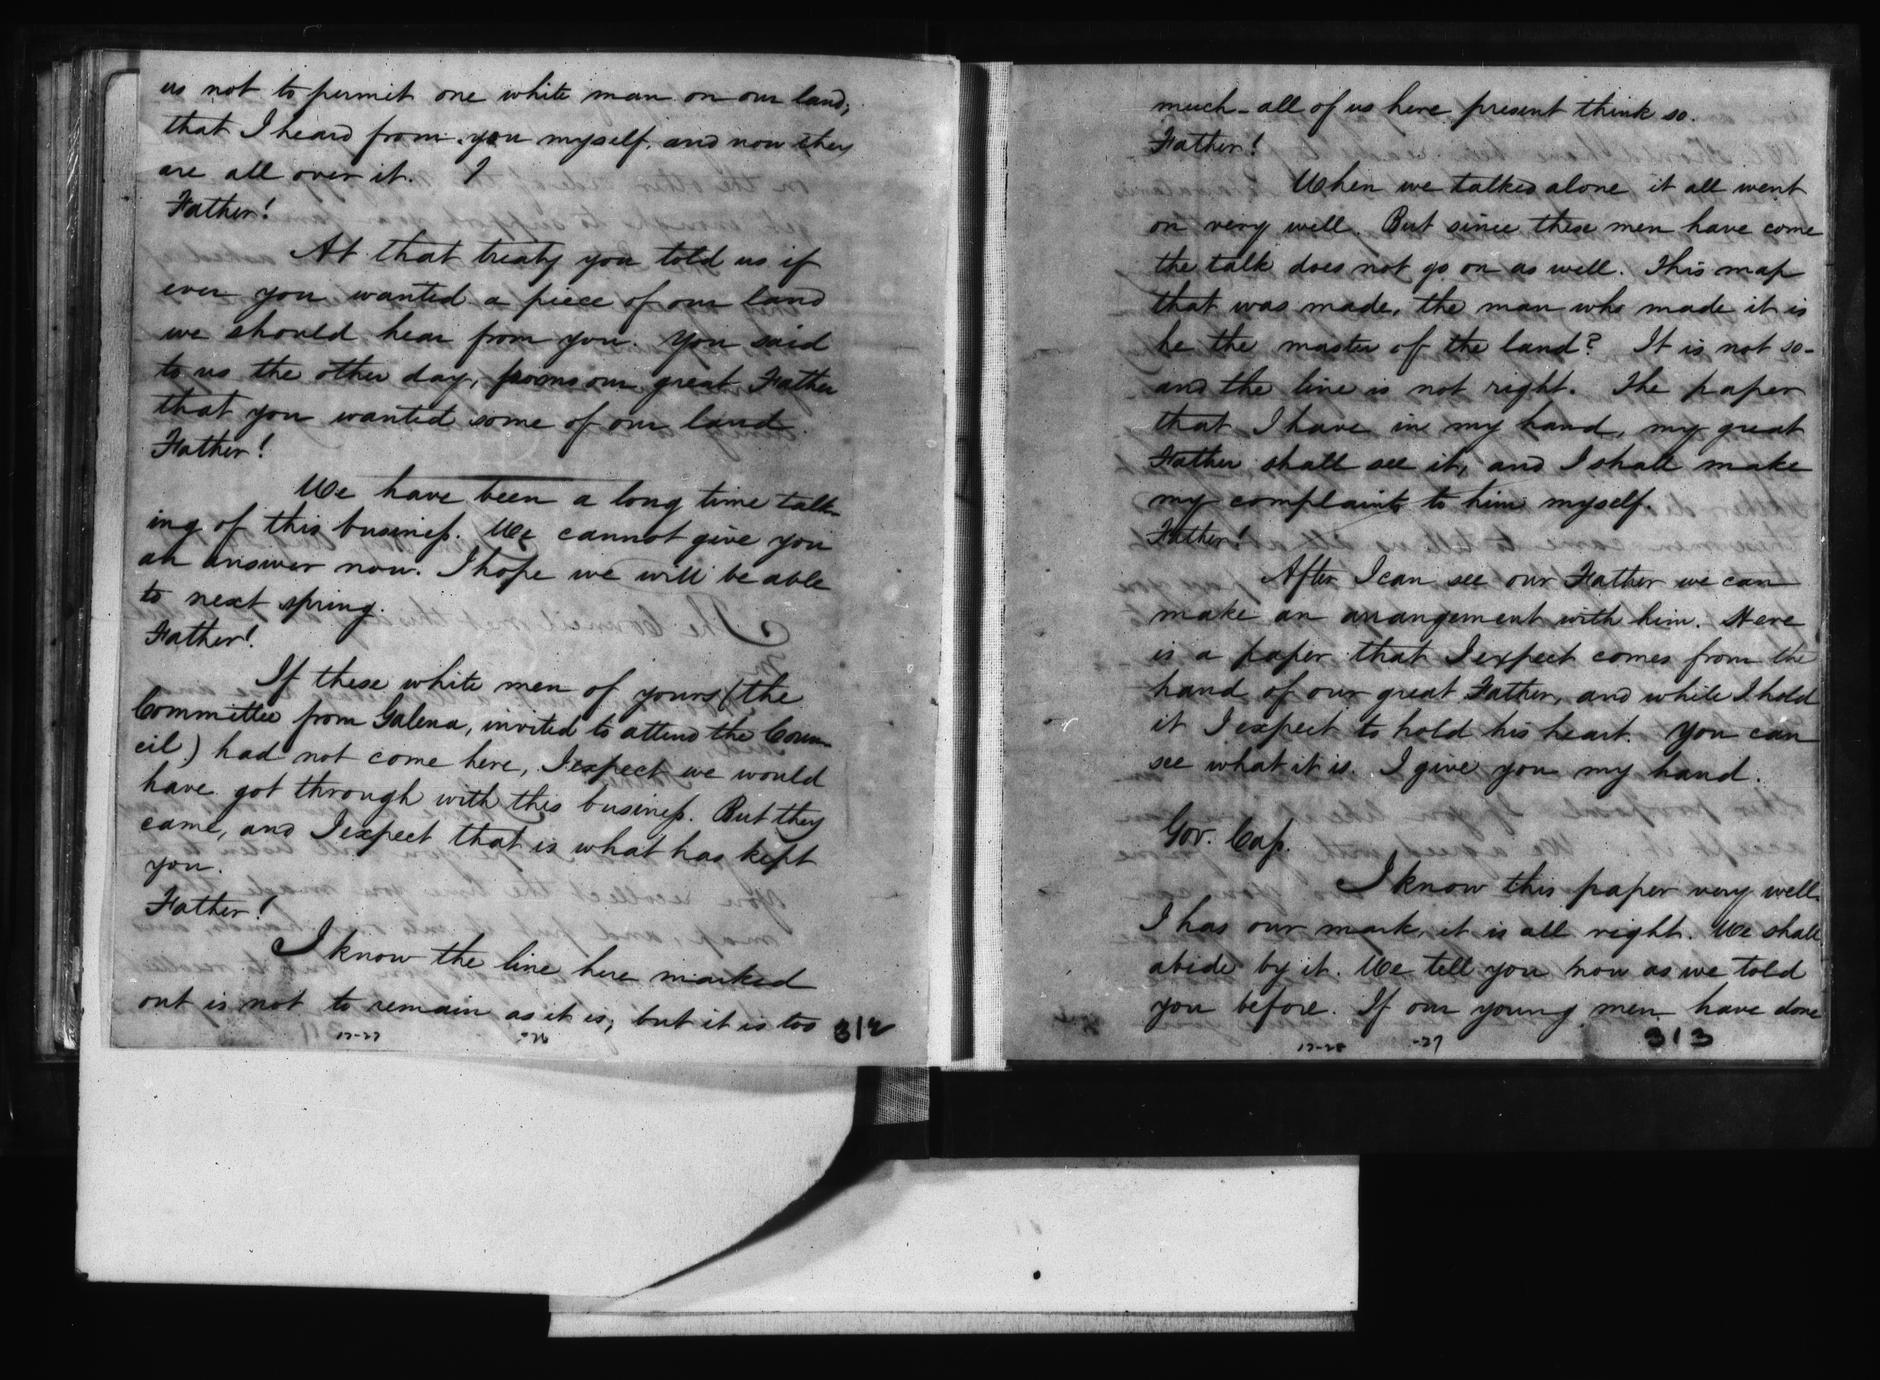 us not to permit one white man on our land;
that I heard from you myself, and now they
are all over it. I
Father!
At that treaty you told us if
ever you wanted a piece of our land
we should hear from you. You said
to us the other day, from our great Father
that you wanted some of our land.
Father!
We have been a long time talk-
ing of this business. We cannot give you
an answer now. I hope we will be able
to next spring.
Father!
If these white men of yours (the
Committee from Galena, invited to attend the Coun-
cil) had not come here, I expect we would
have got through with this business. But they
came, and I expect that is what has kept
you.
Father!
I know the line here marked
out is not to remain as it is; but it is too
12-27 -26 312
much - all of us here present think so.
Father!
When we talked alone it all went
on very well. But since these men have come
the talk does not go on as well. This map
that was made, the man who made it is
he the master of the land? It is not so -
and the line is not right. The paper
that I have in my hand, my great
Father shall see it, and I shall make
my complaints to him myself.
Father!
After I can see our Father we can
make an arrangement with him. Here
is a paper that I expect comes from the
hand of our great Father, and while I hold
it I expect to hold his heart. You can
see what it is. I give you my hand.
Gov. Cass.
I know this paper very well.
I has our mark, it is all right. We shall
abide by it. We tell you now as we told
you before. If our young men have done
12-28 -27 313